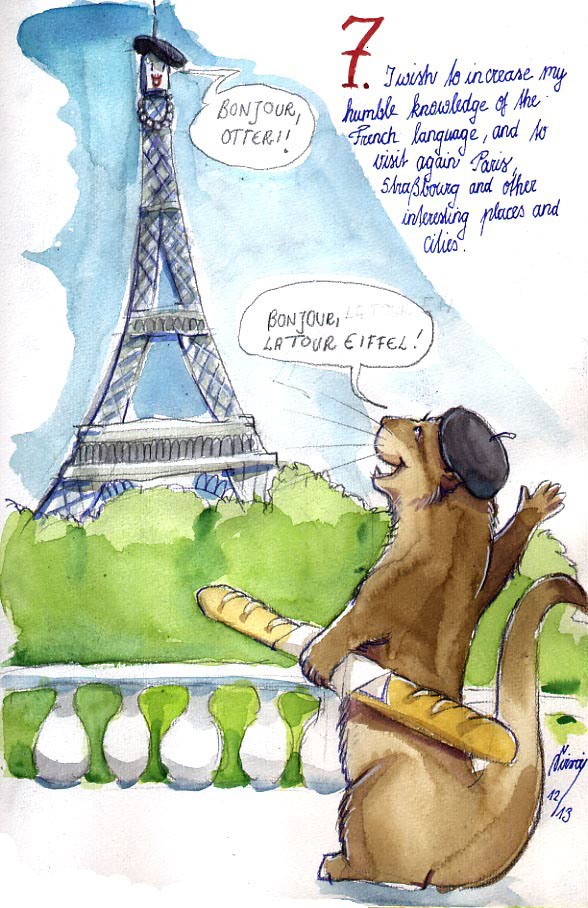 7.
I wish to increase my
humble knowledge of the
French language, and to
visit again Paris,
Straßbourg and other
interesting places and
cities.
BONJOUR,
OTTER!!
BONJOUR,
LA TOUR EIFFEL!
12/13